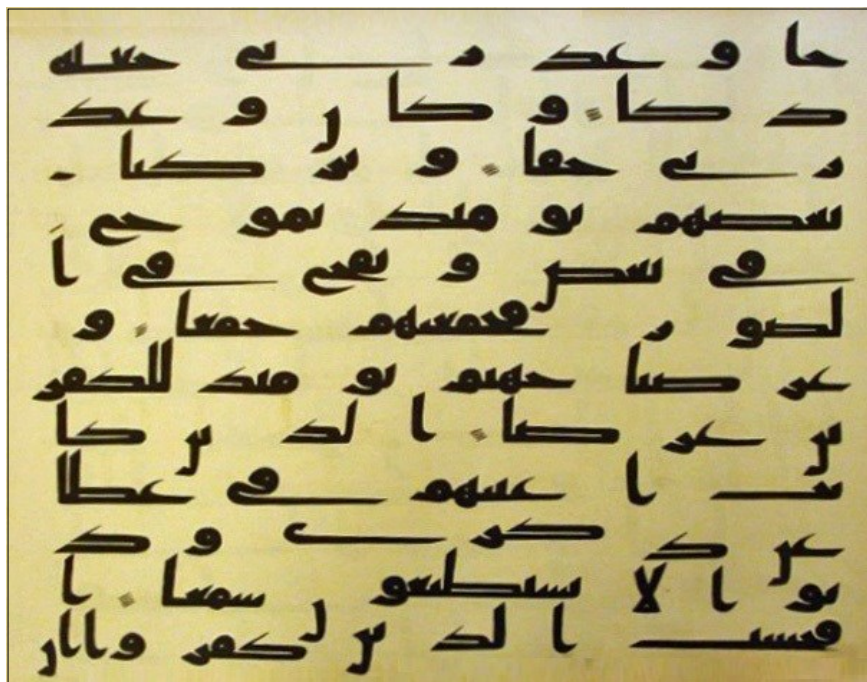 جا وعد ربي جعله
دكا وكان وعد
ربي حقا وتركنا
بعضهم يومئذ يموج
في بعض ونفخ في ا
لصور فجمعنهم جمعا و
عرضنا جهنم يومئذ للكفر
ين عرضا الذين كا
نت اعينهم في غطا
عن ذكري وكا
نوا لا يستطيعون سمعا ا
فحسب الذين كفروا ان